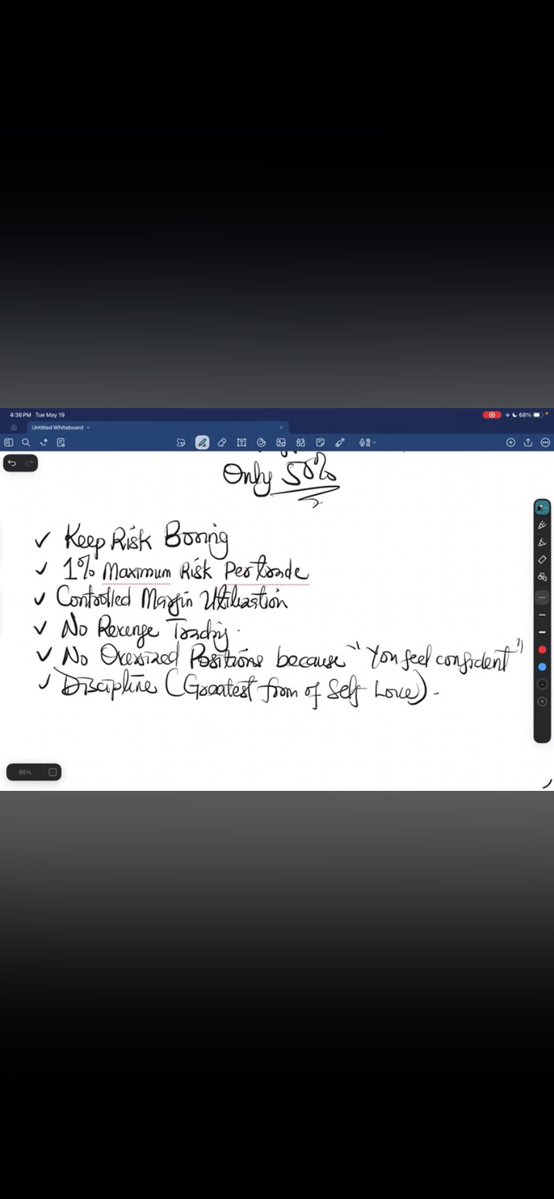 4:36 PM Tue May 19
68%
Untitled Whiteboard
Only 50%
✓ Keep Risk Boring
✓ 1% Maximum Risk Per trade
✓ Controlled Margin Utilisation
✓ No Revenge Trading.
✓ No Oversized Positions because "You feel confident"
✓ Discipline (Greatest from of Self Love).
85%